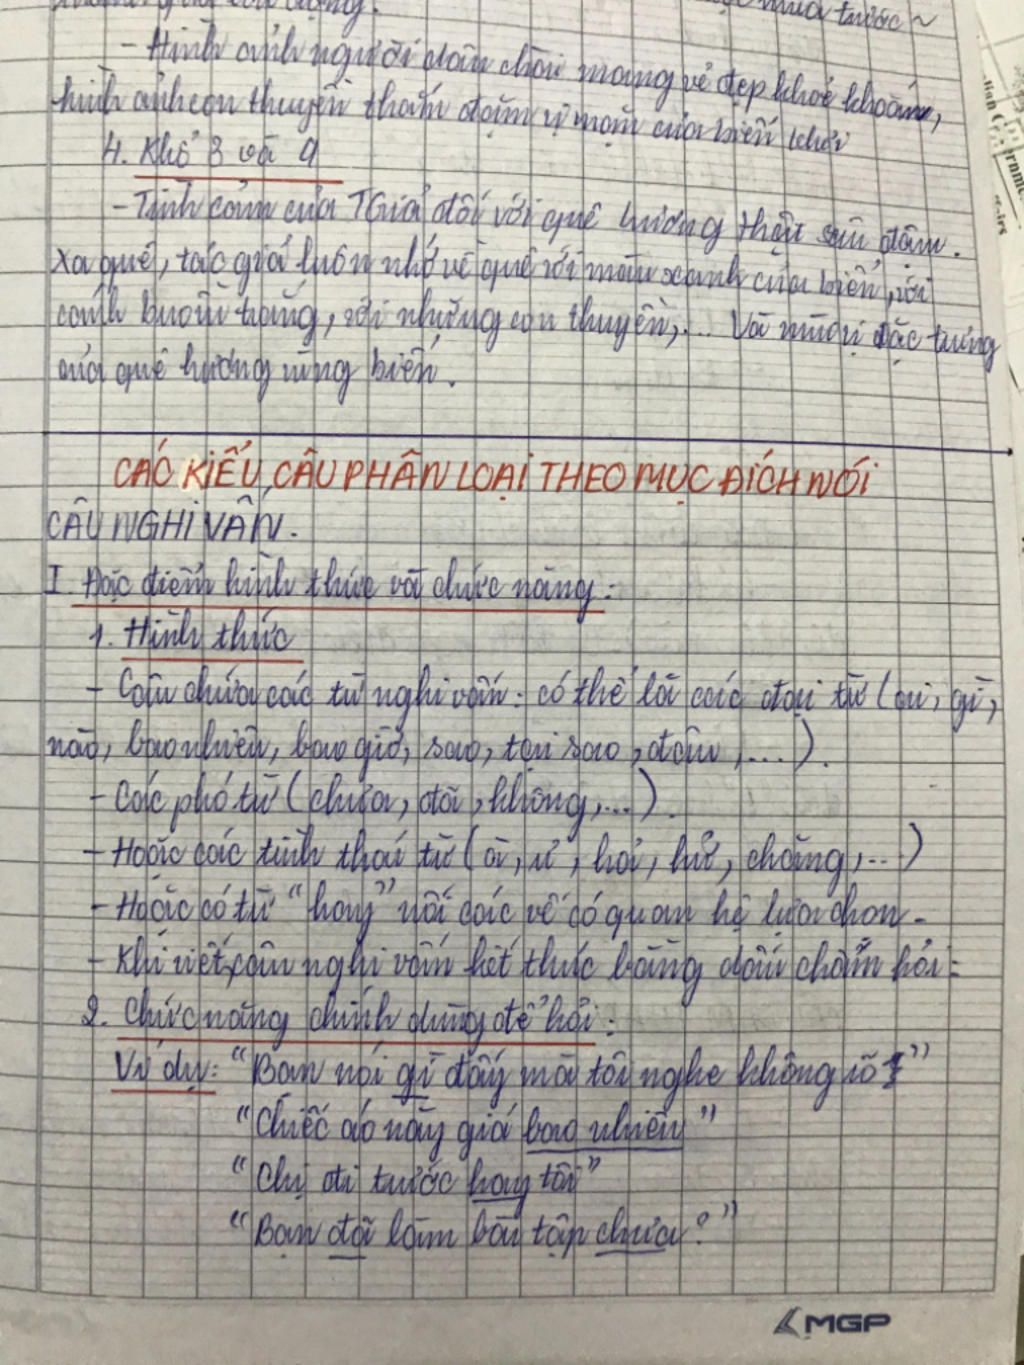 mưa trước ~
- Hình ảnh người dân chài mang vẻ đẹp khoẻ khoắn,
hình ảnh con thuyền thấm đậm vị mặn của biển khơi
4. Khổ 3 và 4
- Tình cảm của TGiả đối với quê hương thật sâu đậm.
Xa quê, tác giả luôn nhớ về quê với màu xanh của biển, với
cánh buồm trắng, với những con thuyền,... Và mùi vị đặc trưng
của quê hương vùng biển.
CÁC KIỂU CÂU PHÂN LOẠI THEO MỤC ĐÍCH NÓI
CÂU NGHI VẤN.
I. Đặc điểm hình thức và chức năng:
1. Hình thức
- Câu chứa các từ nghi vấn: có thể là các đại từ (ai, gì,
nào, bao nhiêu, bao giờ, sao, tại sao, đâu,...).
- Các phó từ (chưa, đã, không,...).
- Hoặc các tình thái từ (à, ư, hả, hử, chăng,...)
- Hoặc có từ "hay" nối các vế có quan hệ lựa chọn.
- Khi viết, câu nghi vấn kết thúc bằng dấu chấm hỏi.
2. Chức năng chính dùng để hỏi:
Ví dụ: "Bạn nói gì đấy mà tôi nghe không rõ?"
"Chiếc áo này giá bao nhiêu"
"Chị đi trước hay tôi"
"Bạn đã làm bài tập chưa?"
MGP